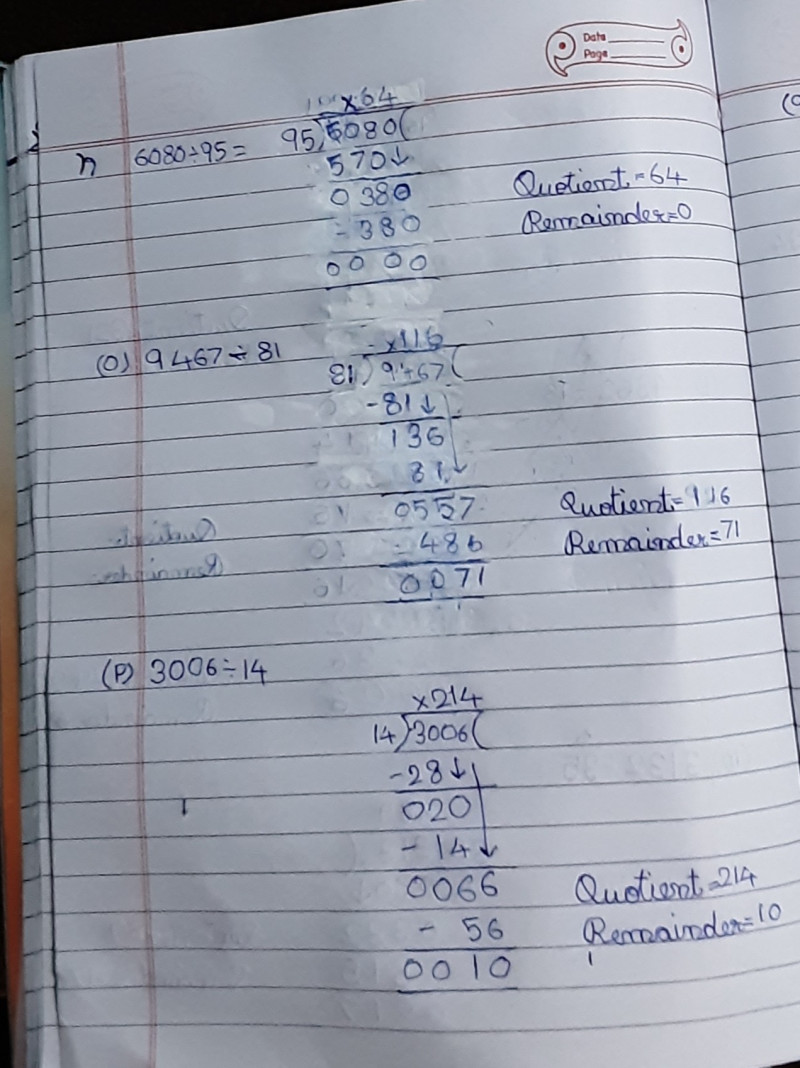 Date
Page
x64
n 6080÷95= 95)6080(
570↓
0380
Quotient=64
-380
Remainder=0
0000
x116
(O) 9467÷81
81)9467(
-81↓
136
81↓
0557
Quotient=116
-486
Remainder=71
0071
(P) 3006÷14
x214
14)3006(
-28↓
020
-14↓
0066
Quotient=214
- 56
Remainder=10
0010